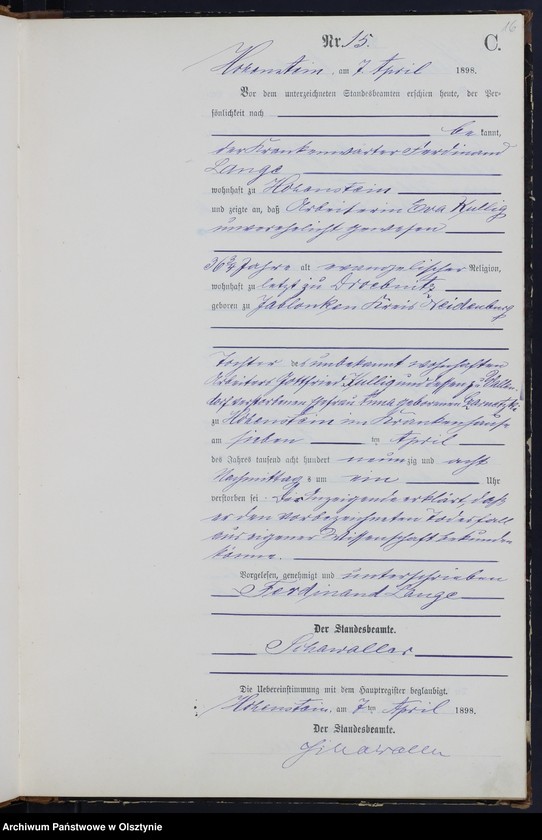 16
Nr. 15.
C.
Hohenstein, am 7 April 1898.
Vor dem unterzeichneten Standesbeamten erschien heute, der Per-
sönlichkeit nach
bekannt,
der Krankenwärter Ferdinand
Lange
wohnhaft zu Hohenstein
und zeigte an, daß Arbeiterin Eva Kullig
unverehelicht gewesen
36 3/4 Jahre alt evangelischer Religion,
wohnhaft zu letzt zu Droebnitz
geboren zu Jablonken Kreis Neidenburg
Tochter des unbekannt wohnhaften
Arbeiters Gottfried Kullig und dessen zu
verstorbenen Ehefrau Anna geborenen
zu Hohenstein im Krankenhause
am sieben ten April
des Jahres tausend acht hundert neunzig und acht
Nachmittags um ein Uhr
verstorben sei. Der Anzeigende erklärt, daß
er den vorbezeichneten Todesfall
aus eigener Wissenschaft bekunden
könne.
Vorgelesen, genehmigt und unterschrieben
Ferdinand Lange
Der Standesbeamte.
Schawaller
Die Uebereinstimmung mit dem Hauptregister beglaubigt.
Hohenstein, am 7ten April 1898.
Der Standesbeamte.
Schawaller
Archiwum Państwowe w Olsztynie